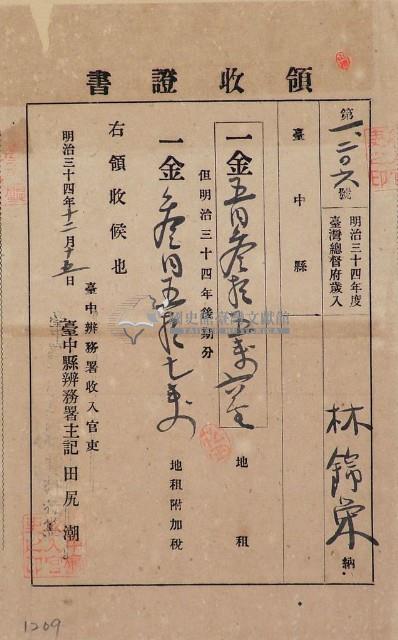 領收證書
第一、二〇六號
明治三十四年度
臺灣總督府歲入
林錦榮 納
臺中縣
一金五円參拾五戔六厘 地租
但明治三十四年後期分
一金參円五拾七戔 地租附加稅
右領收候也
臺中辨務署收入官吏
明治三十四年十二月十五日
臺中縣辨務署主記 田尻潮
國史館臺灣文獻館
1209